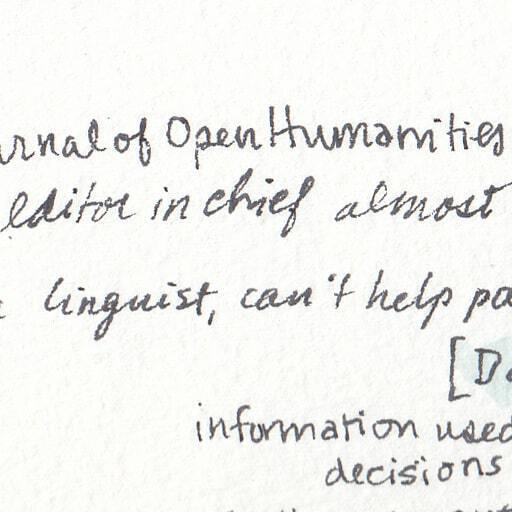 urnal of Open Humanities
editor in chief almost
linguist, can't help pa
[Da
information used
decisions